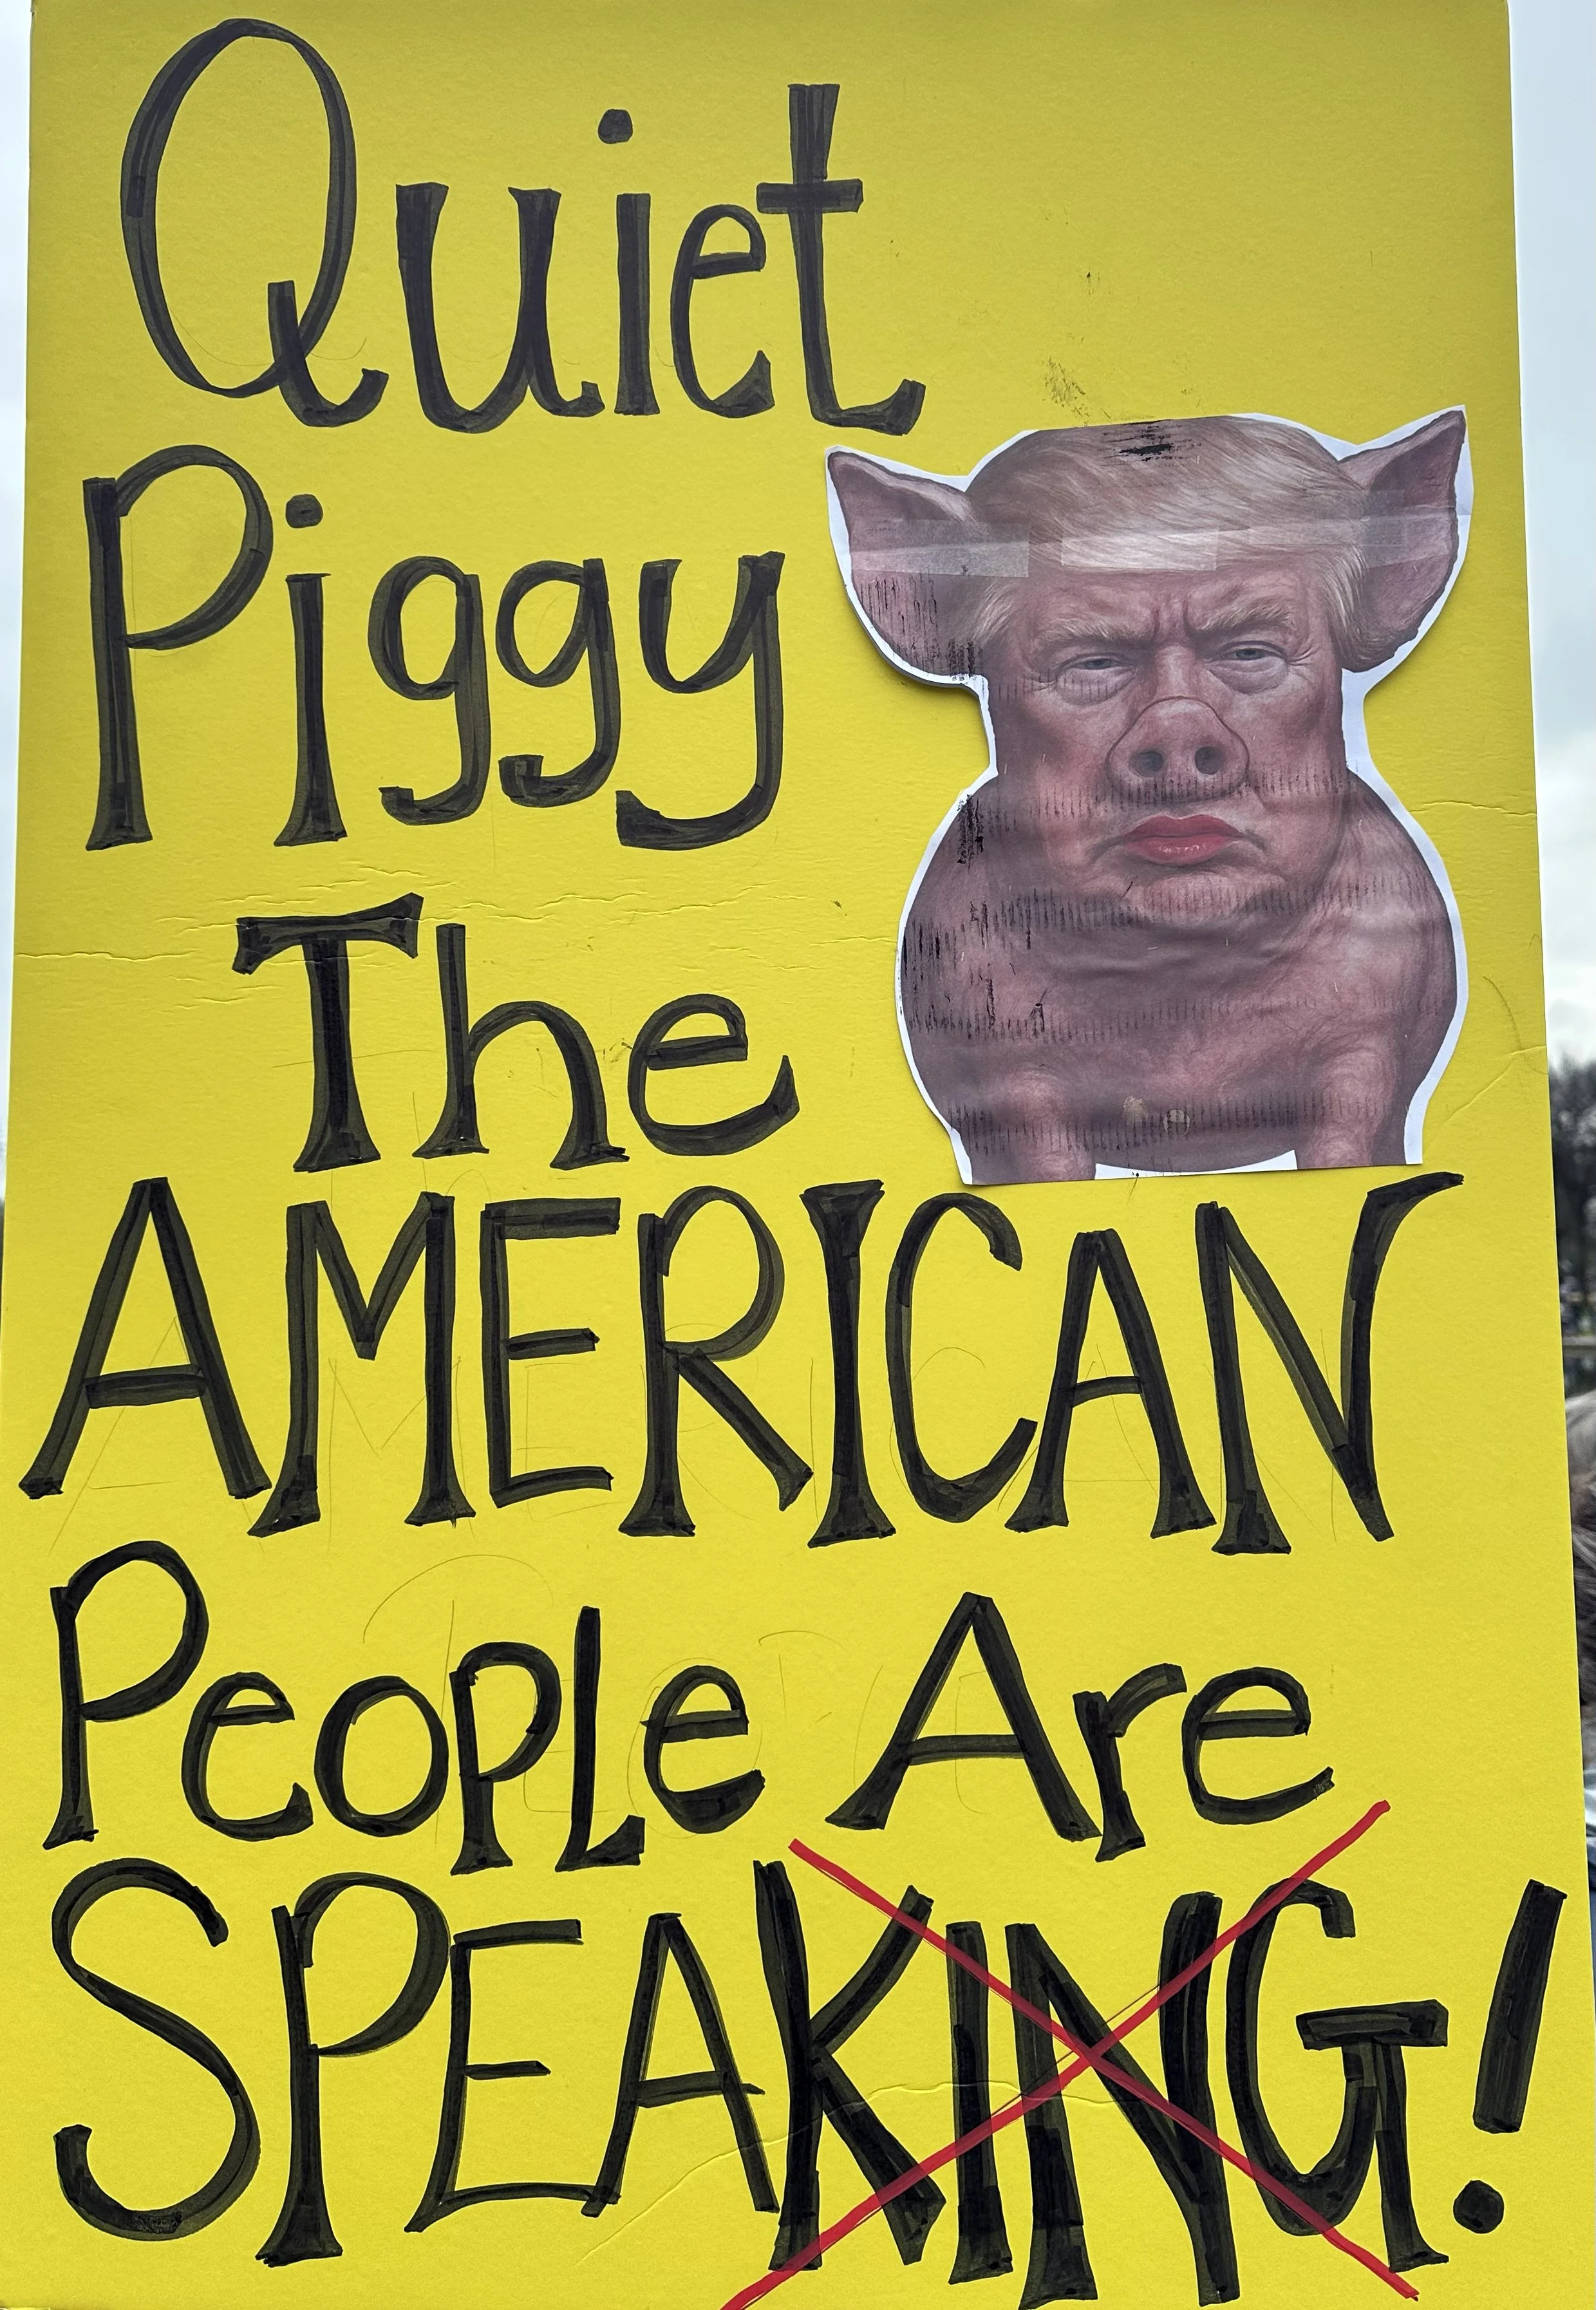 Quiet
Piggy
The
AMERICAN
People Are
SPEAKING!